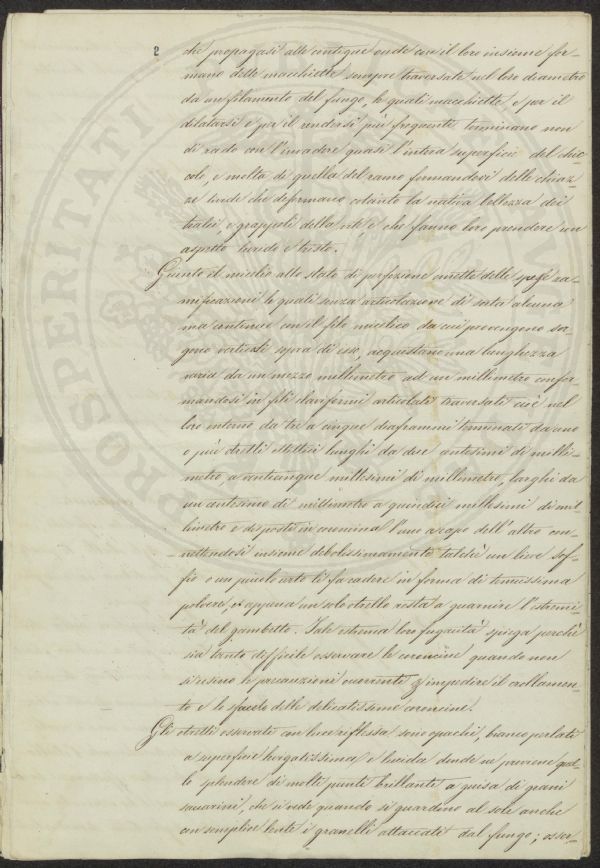 2
che propagasi alle contigue onde con il loro insieme for-
mano delle macchiette sempre traversate nel loro diametro
da un filamento del fungo, le quali macchiette, e per il
dilatarsi e per il rendersi più frequenti terminano non
di rado con l'invadere quasi l'intera superficie del chic-
colo, e molta di quella del ramo formandovi delle chiaz-
ze livide che deformano cotanto la nativa bellezza dei
tralci, e grappoli della vite e che fanno loro prendere un
aspetto livido e tristo.
Giunto il micelio allo stato di perfezione emette delle spesse ra-
mificazioni le quali senza articolazione di sorta alcuna
ma continue con il filo micelico da cui provengono sor-
gono verticali sopra di esse, acquistano una lunghezza
varia da un mezzo millimetro ad un millimetro confor-
mandosi in fili claviformi articolati traversati cioè nel
loro interno da tre a cinque diaframmi terminati da uno
o più otrelli ellittici lunghi da due centesimi di milli-
metro a venticinque millesimi di millimetro, larghi da
un centesimo di millimetro a quindici millesimi di mil-
limetro e disposti in coroncina l'uno a capo dell'altro con-
nettendosi insieme debolissimamente talchè un lieve sof-
fio o un piccolo urto li fa cadere in forma di tenuissima
polvere, e appena un solo otrello resta a guarnire l'estremi-
tà del gambetto. Tale estrema loro fugacità spiega perchè
sia tanto difficile osservare le coroncine quando non
si usino le precauzioni occorrenti ad impedire il crollamen-
to e lo sfacelo delle delicatissime coroncine.
Gli otrelli osservati con luce riflessa sono opachi, bianco perlati
a superficie levigatissima e lucida donde ne proviene quel-
lo splendere di molti punti brillanti a guisa di grani
zuccarini, che si vede quando si guardino al sole anche
con semplice lente i granelli attaccati dal fungo; osser-
PROSPERITATI